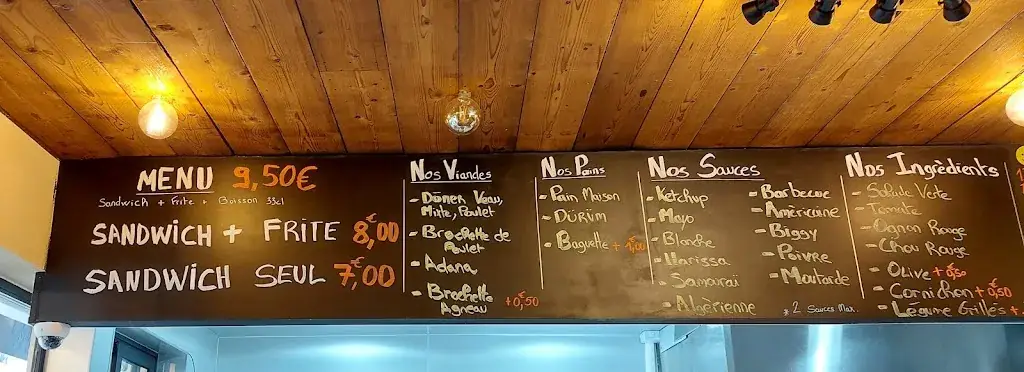 MENU 9,50€
Sandwich + Frite + Boisson 33cl
SANDWICH + FRITE 8,00€
SANDWICH SEUL 7,00€
Nos Viandes
- Döner Veau,
Mixte, Poulet
- Brochette de
Poulet
- Adana
- Brochette +0,50
Agneau
Nos Pains
- Pain Maison
- DÜRÜM
- Baguette + 1,00
Nos Sauces
- Ketchup
- Mayo
- Blanche
- Harissa
- Samouraï
- Algèrienne
- Barbecue
- Amèricaine
- Biggy
- Poivre
- Moutarde
* 2 Sauces Max.
Nos Ingrèdients
- Salade Verte
- Tomate
- Ognon Rouge
- Chou Rouge
- Olive +0,50
- Cornichon +0,50
- Lègume Grillès +